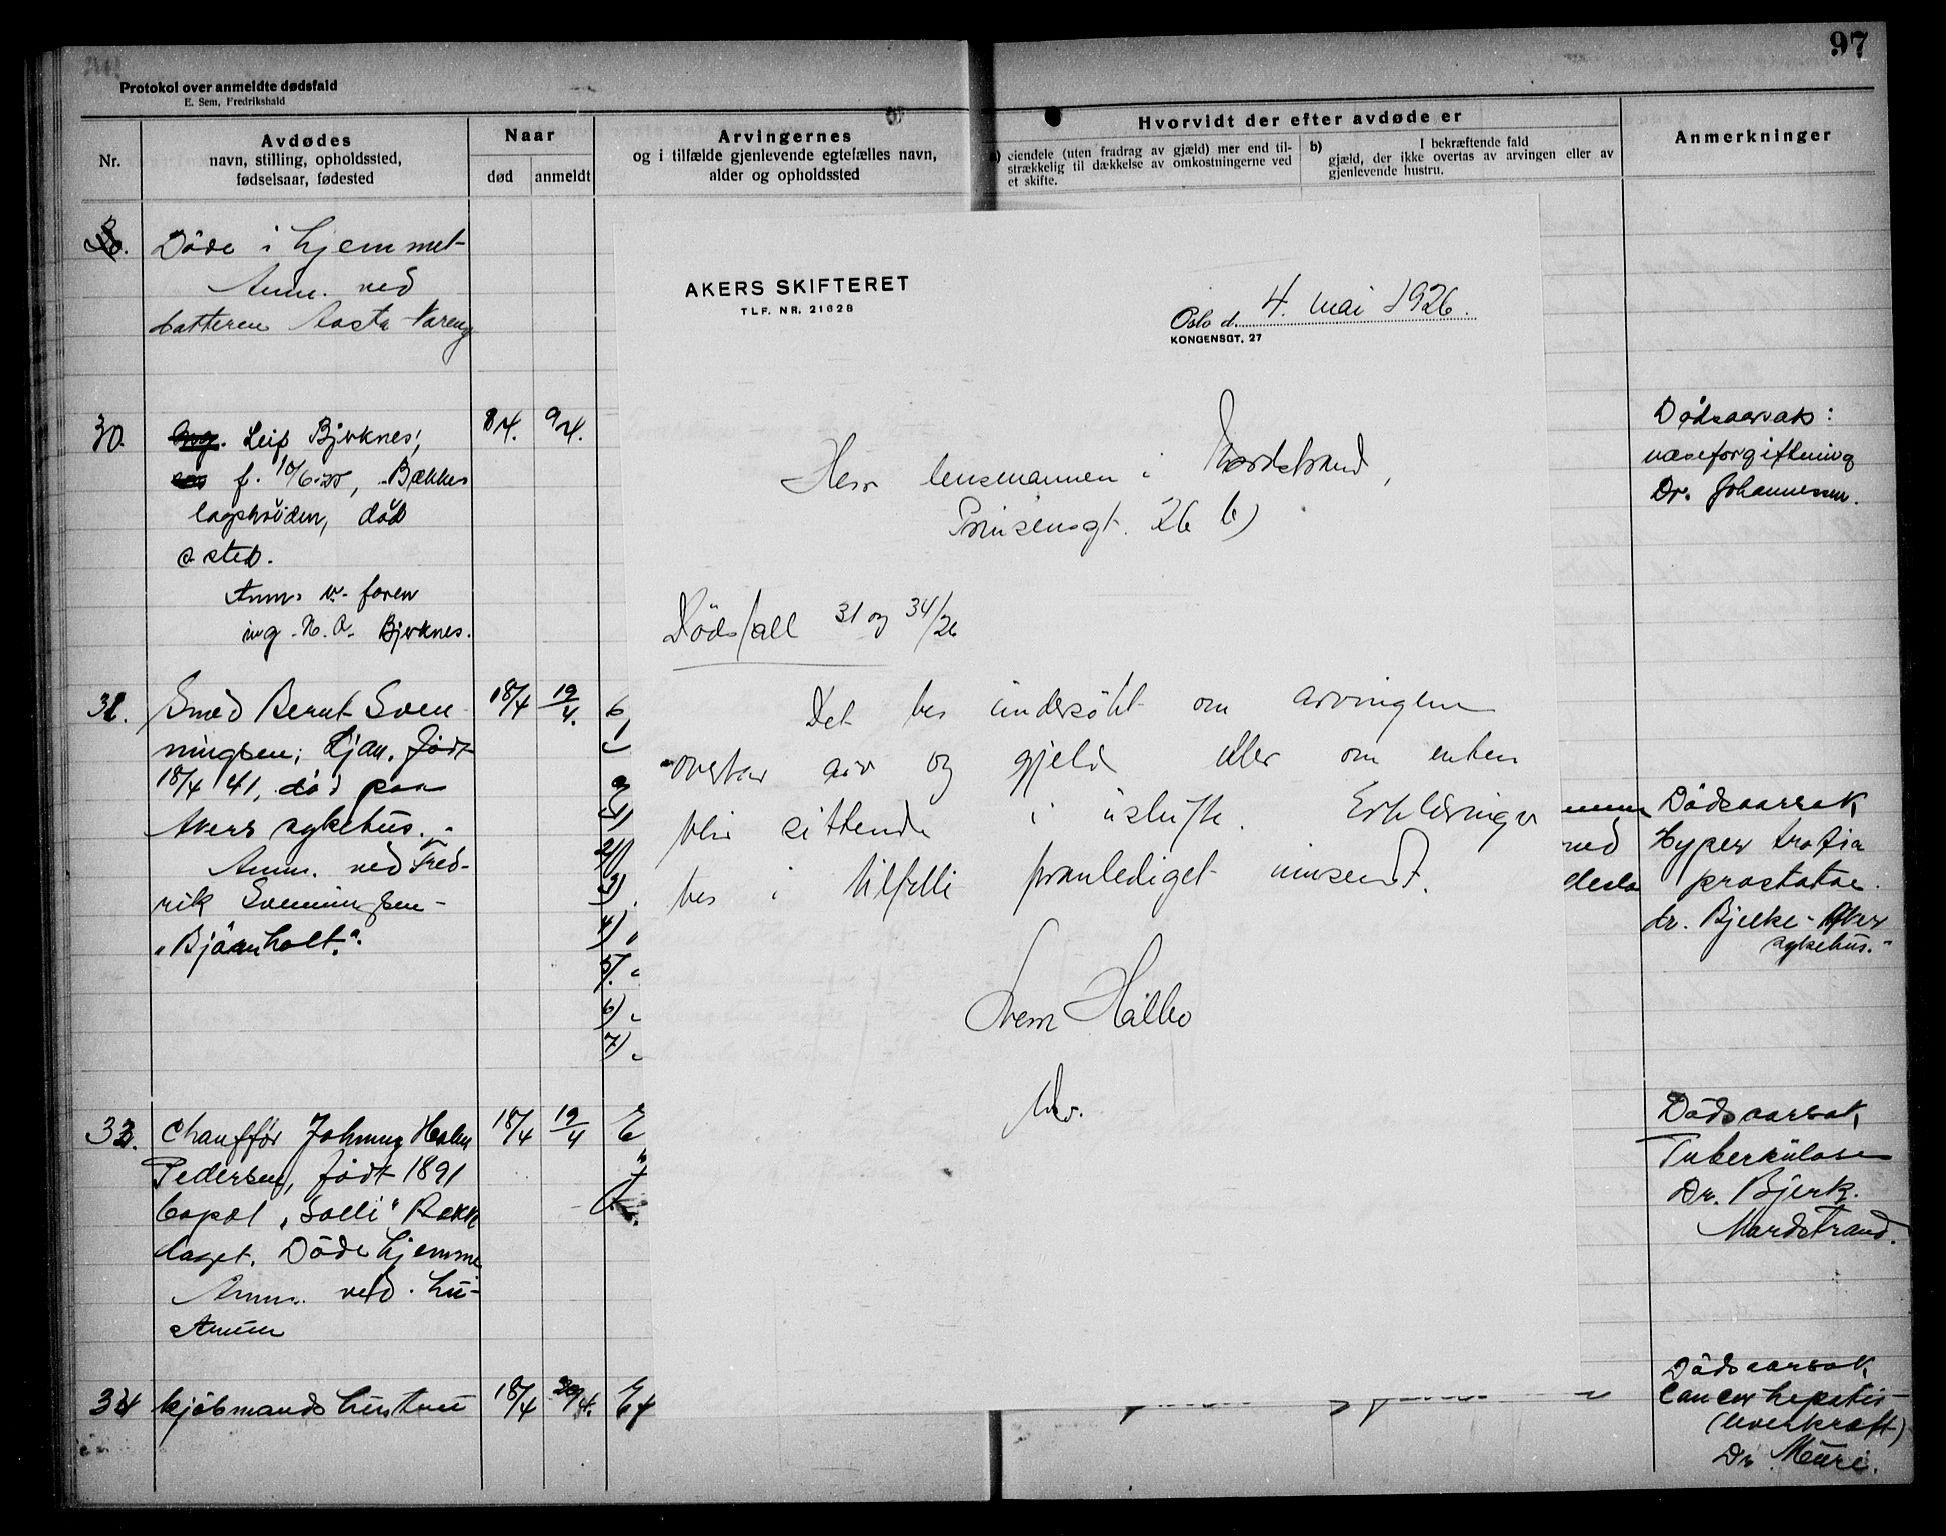 97
Protokol over anmeldte dødsfald
E. Sem, Fredrikshald
Nr.
Avdødes
navn, stilling, opholdssted,
fødselsaar, fødested
Naar
død
anmeldt
Arvingernes
og i tilfælde gjenlevende egtefælles navn,
alder og opholdssted
Hvorvidt der efter avdøde er
eiendele (uten fradrag av gjæld) mer end til-
strækkelig til dækkelse av omkostningerne ved
et skifte.
b)
I bekræftende fald
gjæld, der ikke overtas av arvingen eller av
gjenlevende hustru.
Anmerkninger
Døde i hjemmet
Anm. ved
datteren Aasta Vareng
30.
Leif Bjerknes,
f. 10/6-25, Bække
lagshøiden, død
s sted.
Anm. v. faren
ing. N. A. Bjerknes.
8/4. 9/4.
Dødsaarsak:
Dr. Johannesen.
31.
Smed Bernt Sven
ningsen, Ljan, født
18/4 41, død paa
Akers sykehus.
Anm. ved Fred-
rik Svenningsen
"Bjørnholt".
18/4 19/4.
6
1)
2)
3)
4)
5)
6)
7)
ned
Dødsaarsak
Hypertrofia
prostatae.
dr. Bjelke - Aker
sykehus.
33.
Chauffør Johnny Holm
Pedersen, født 1891
"Solli" Bække
laget. Døde hjemme
Anm. ved hu-
struen
18/4 19/4
E
Dødsaarsak,
Tuberkulose
Dr. Bjerk.
Nordstrand.
34
kjøbmands hustru
18/4 20/4.
Dødsaarsak,
Cancer hepatis
(leverkræft)
Dr.
AKERS SKIFTERET
TLF. NR. 21628
Oslo d. 4. mai 1926.
KONGENSGT. 27
Herr lensmannen i Nordstrand,
Prinsensgt. 26 b)
Dødsfall 31 og 34/26
Det bes undersøkt om arvingene
overtar arv og gjeld eller om enken
blir sittende i uskifte. Erklæringer
bes i tilfelle foranlediget innsendt.